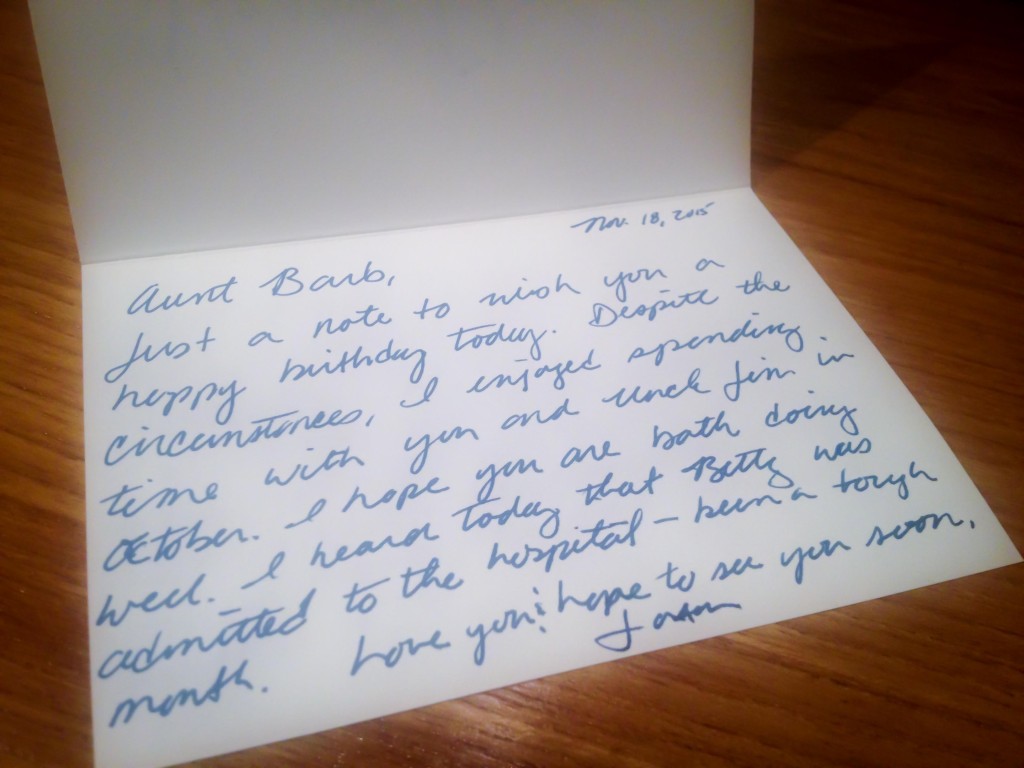 Nov. 18, 2015
Aunt Barb,
Just a note to wish you a
happy birthday today. Despite the
circumstances, I enjoyed spending
time with you and Uncle Jim in
October. I hope you are both doing
well. I heard today that Betty was
admitted to the hospital - been a tough
month. Love you! hope to see you soon.